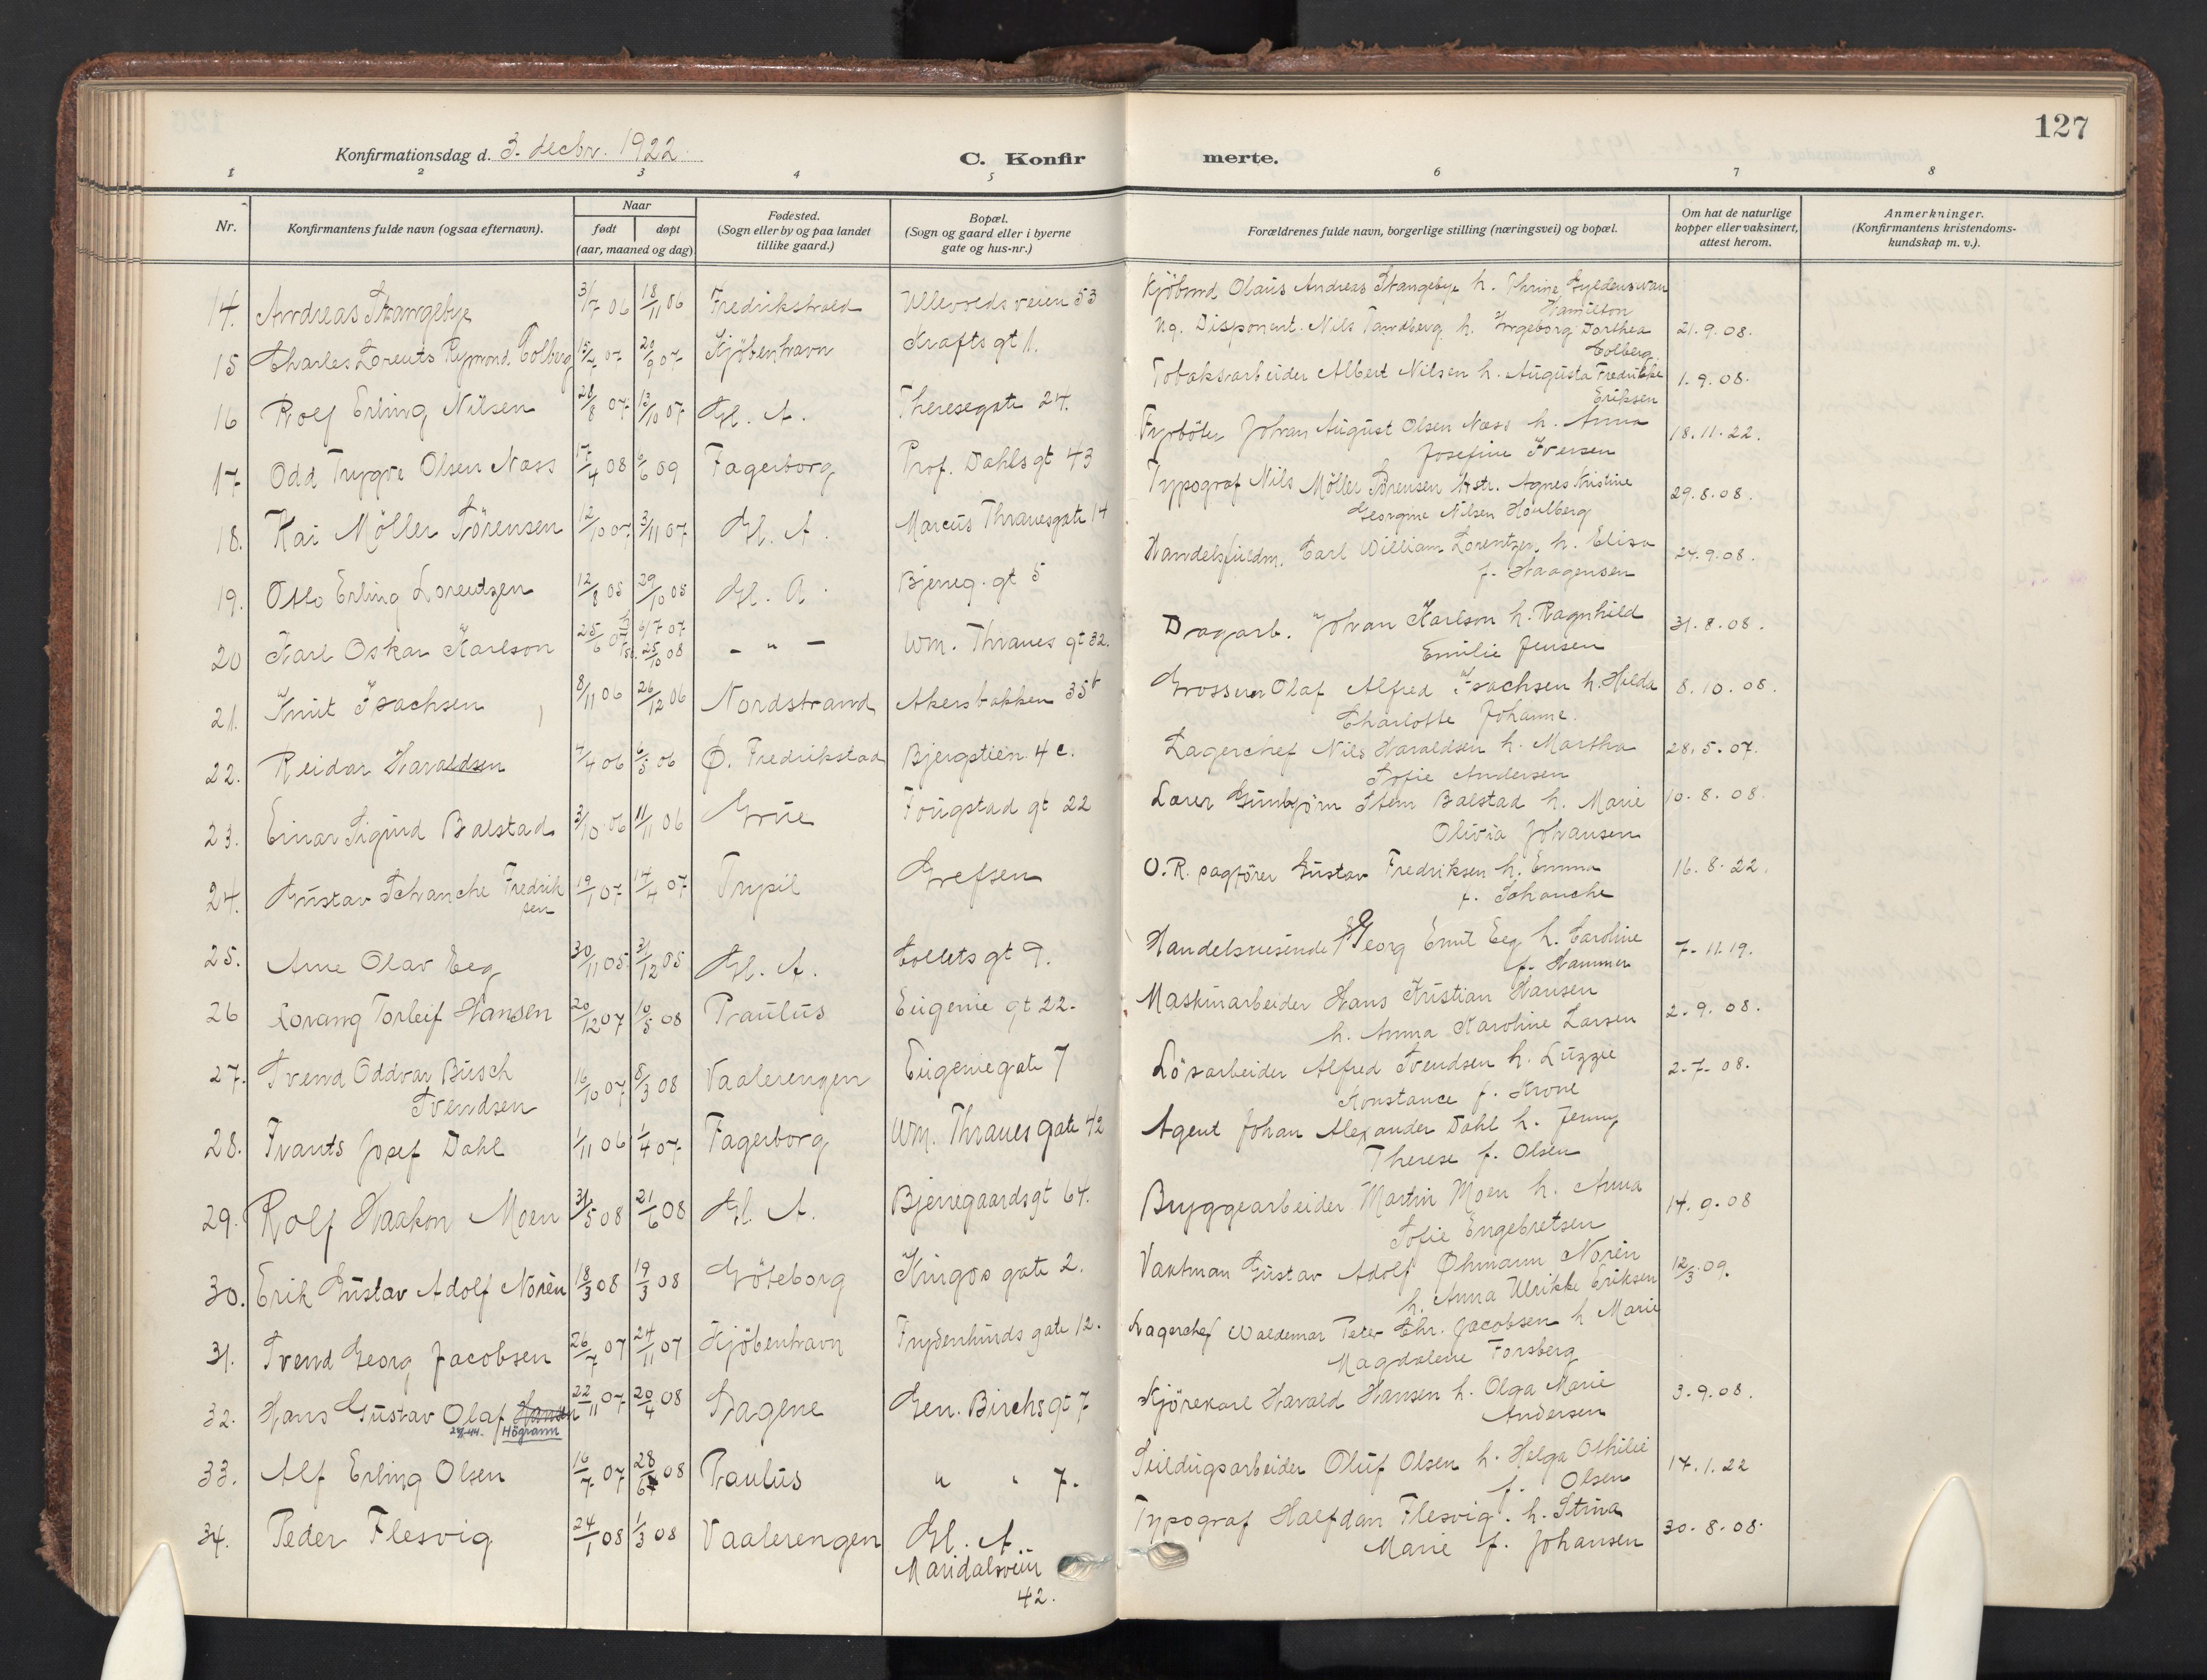 127
Konfirmationsdag d. 3. decbr. 1922.
C. Konfirmerte.
1 2 3 4 5 6 7 8
Nr.
Konfirmantens fulde navn (ogsaa efternavn).
Naar
født
døpt
(aar, maaned og dag)
Fødested.
(Sogn eller by og paa landet
tillike gaard.)
Bopæl.
(Sogn og gaard eller i byerne
gate og hus-nr.)
Forældrenes fulde navn, borgerlige stilling (næringsvei) og bopæl.
Om hat de naturlige
kopper eller vaksinert,
attest herom.
Anmerkninger.
(Konfirmantens kristendoms-
kundskap m. v.).
14. Andreas Stangebye 31/7 06 18/11 06 Fredrikshald Ullevoldsveien 53 Kjöbmd Olaus Andreas Stangebye h. Thrine Gyldenswan
Hamilton
15 Charles Lorents Rymond. Colberg 15/7 07 20/9 07 Kjöbenhavn Krafts gt 1. Ug. Disponent. Nils Tandberg h. Ingeborg Dorthea 21.9.08.
Colberg.
16 Rolf Erling Nilsen 28/8 07 13/10 07 Gl. A. Theresegate 24. Tobaksarbeider Albert Nilsen h. Augusta Fredrikke 1.9.08.
Eriksen
17 Odd Trygve Olsen Næss 17/4 08 6/6 09 Fagerborg Prof. Dahls gt 43 Fyrböter Johan August Olsen Næss h. Anna 18.11.22.
Josefine Iversen
18. Kai Möller Sörensen 12/10 07 3/11 07 Gl. A. Marcus Thranesgate 14 Typograf Nils Möller Sörensen hstr. Agnes Kristine 29.8.08.
Georgine Nilsen Houlberg
19. Otto Erling Lorentzen 12/8 05 29/10 05 Gl. A. Bjerreg. gt 5 Handelsfuldm. Carl William Lorentzen h. Elisa 24.9.08.
f. Haagensen
20 Karl Oskar Karlson 25/6 07 6/7 07 25/10 08 - " - Wm. Thranes gt 32. Dagarb. Johan Karlson h. Ragnhild 31.8.08.
Emilie Jensen
21. Knut Isachsen 8/11 06 26/12 06 Nordstrand Akersbakken 35b Grosserer Olaf Alfred Isachsen h. Hilda 8.10.08.
Charlotte Johanne.
22. Reidar Haraldsen 4/4 06 6/5 06 Ø. Fredrikstad Bjergstien 4 c. Lagerchef Nils Haraldsen h. Martha 28.5.07.
Sofie Andersen
23. Einar Sigurd Balstad 3/10 06 11/11 06 Grue Fougstad gt 22 Lærer Gunbjörn Stem Balstad h. Marie 10.8.08.
Olivia Johansen
24. Gustav Schanche Fredrik 19/1 07 14/4 07 Trysil Grefsen O.R. sagförer Gustav Fredriksen h. Emma 16.8.22.
sen f. Schanche
25. Arne Olav Eeg 30/11 05 31/12 05 Gl. A. Collets gt 9. Handelsreisende Georg Emil Eeg h. Caroline 7-11.19.
f. Hammer
26 Lorang Torleif Hansen 20/12 07 10/5 08 Paulus Eugenie gt 22. Maskinarbeider Hans Kristian Hansen 2.9.08.
h. Anna Karoline Larsen
27. Svend Oddvar Busch 16/10 07 8/3 08 Vaalerengen Eugeniegate 7 Lösarbeider Alfred Svendsen h. Luzzie 2-7-08.
Svendsen Konstance f. Krone
28. Frants Josef Dahl 1/11 06 1/4 07 Fagerborg Wm. Thranes gate 42 Agent Johan Alexander Dahl h. Jenny
Therese f. Olsen
29. Rolf Haakon Moen 31/5 08 21/6 08 Gl. A. Bjerregaardsgt 64. Bryggearbeider Martin Moen h. Anna 14.9.08
Sofie Engebretsen
30. Erik Gustav Adolf Norén 18/3 08 19/3 08 Göteborg Kingos gate 2. Vaktman Gustav Adolf Øhmann Norén 12/3.09.
h. Anna Ulrikke Eriksen
31. Svend Georg Jacobsen 26/7 07 24/11 07 Kjöbenhavn Frydenlunds gate 12. Lagerchef Waldemar Peter Chr. Jacobsen h Marie
Magdalene Forsberg
32. Hans Gustav Olaf Hansen 22/11 07 20/4 08 Sagene Gen. Birchs gt 7 Kjörekarl Harald Hansen h. Olga Marie 3.9.08.
Högrann Andersen
33. Alf Erling Olsen 16/7 07 28/6 08 Paulus " " 7. Seildugsarbeider Oluf Olsen h. Helga Othilie 14.1.22
f. Olsen
34. Peder Flesvig 24/1 08 1/3 08 Vaalerengen Gl. A. Typograf Halfdan Flesvig. h. Stina 30.8.08.
Maridalsveien Marie f. Johansen
42.